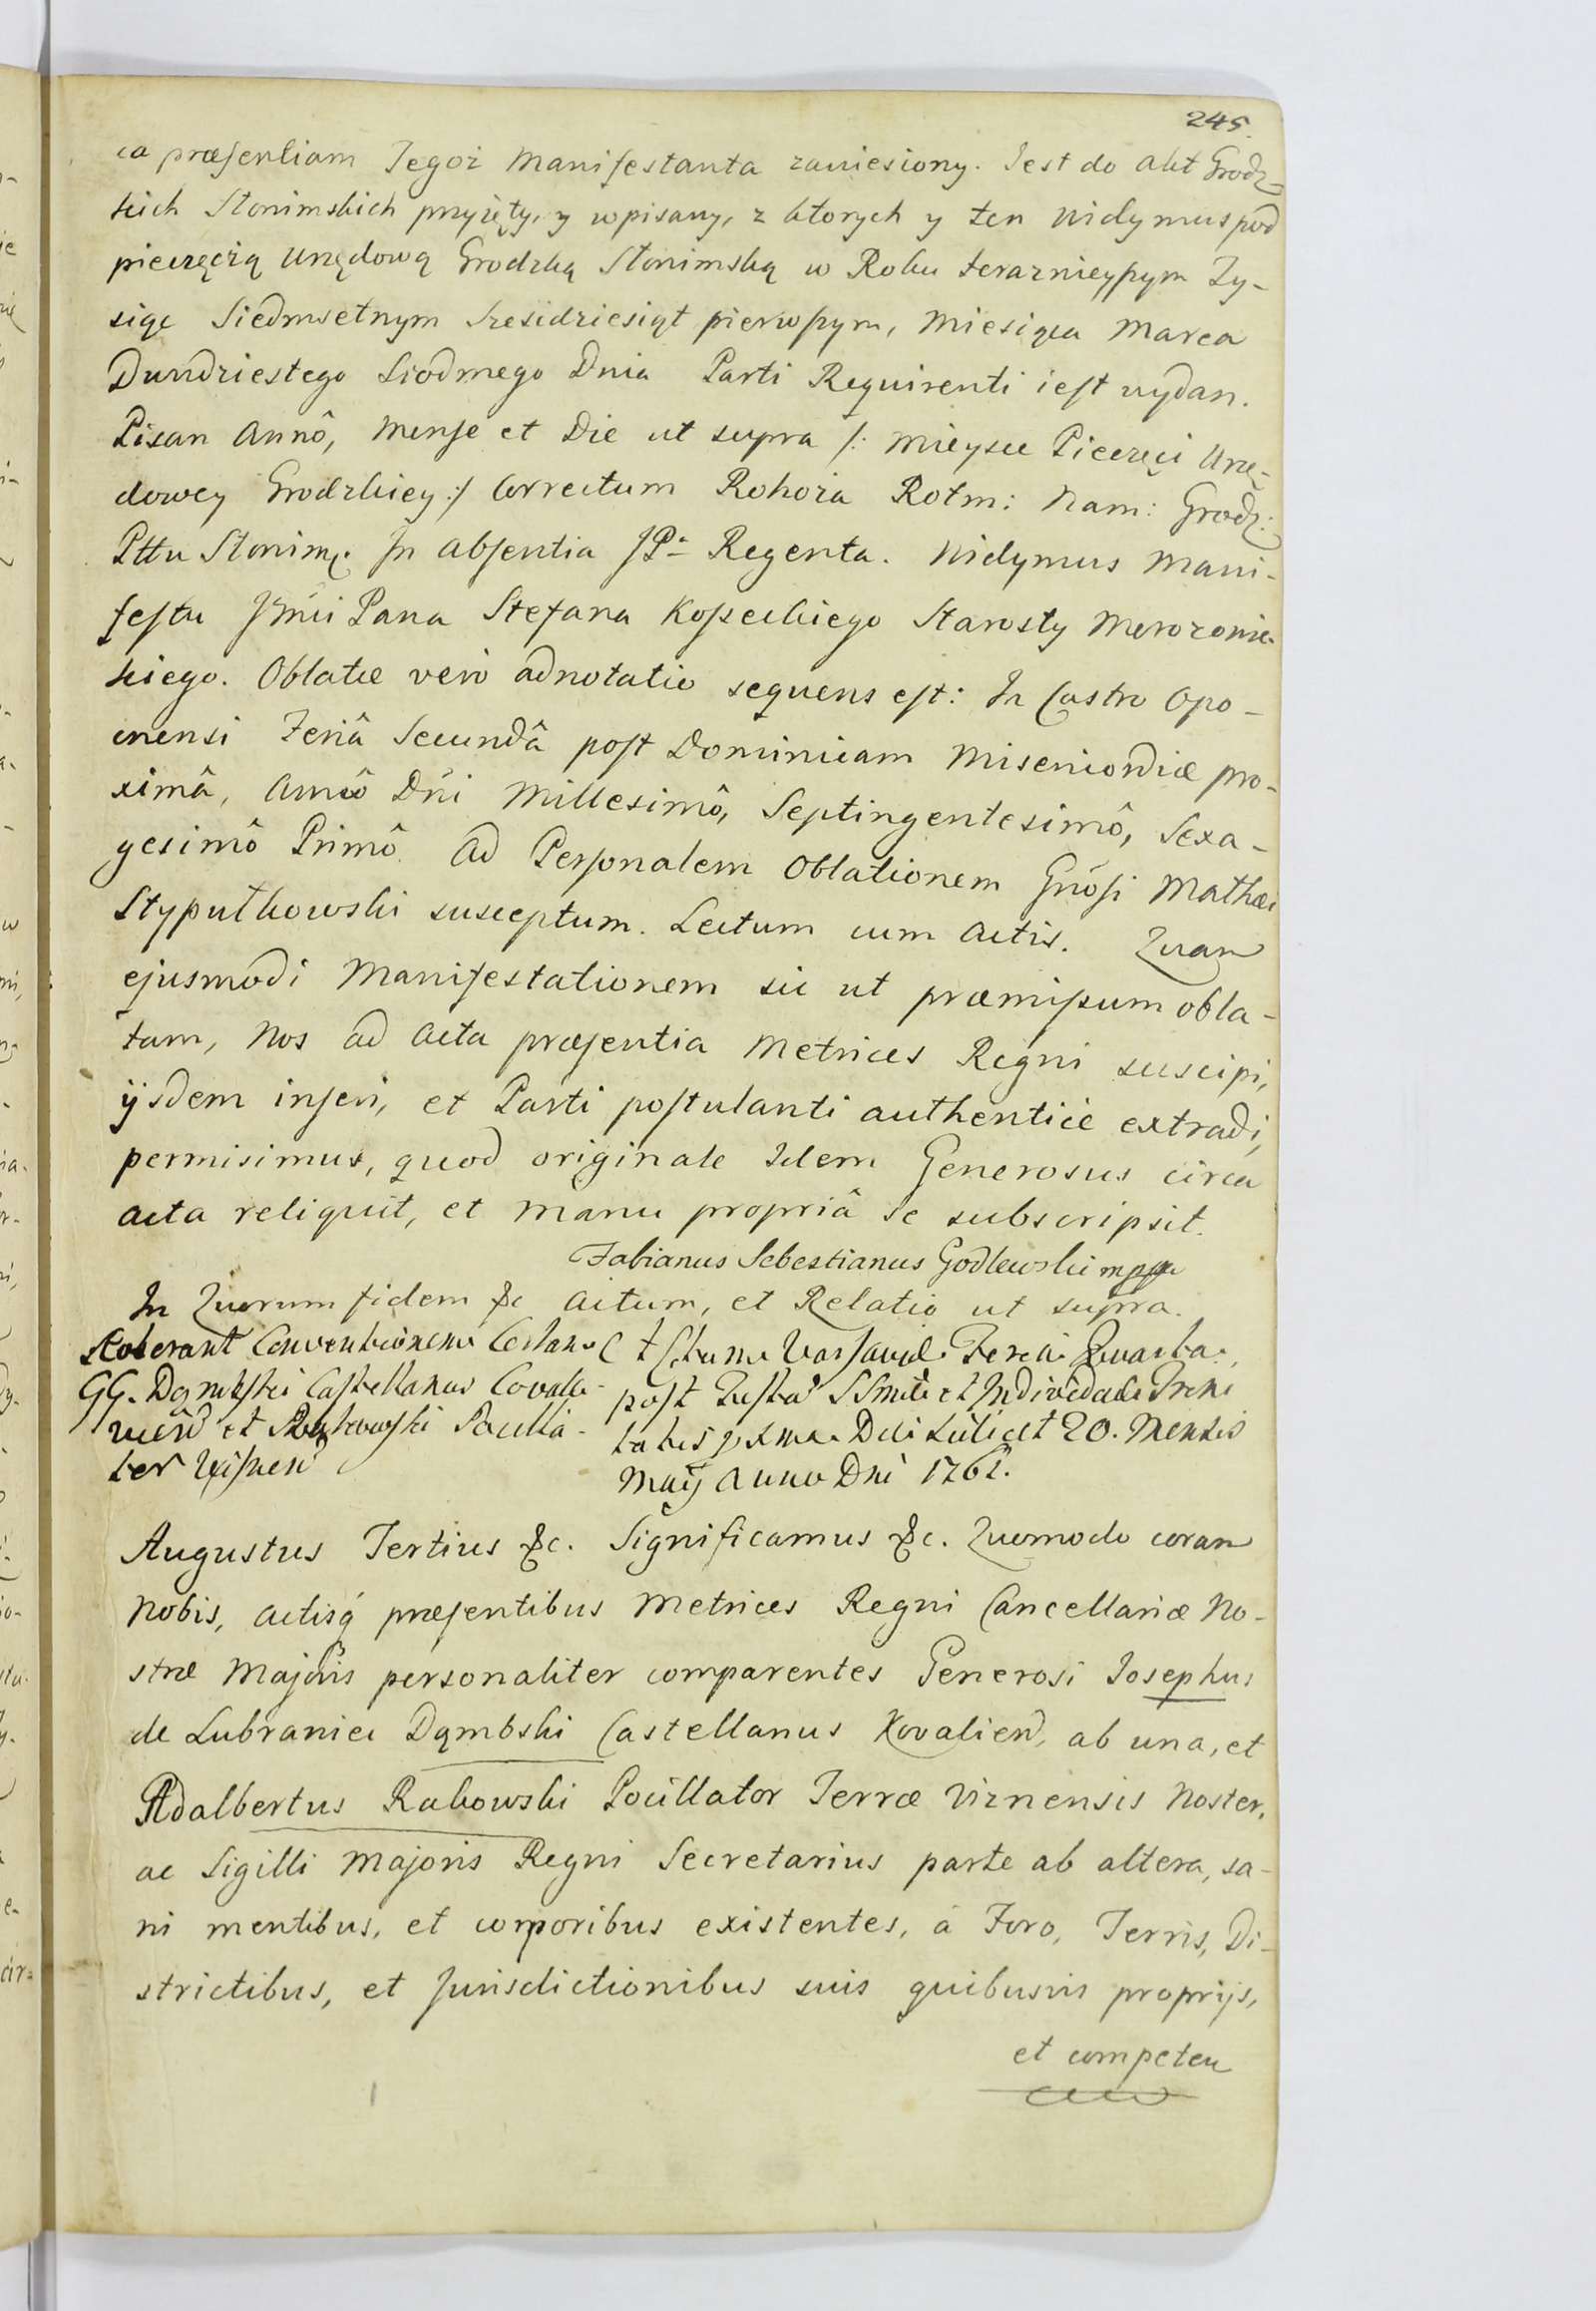 245.
ca præsentiam Tegoż Manifestanta zaniesiony. Jest do akt Grodz-
kich Słonimskich przyięty, y wpisany, z ktorych y ten Widymus pod
pieczęcią Urzędową Grodzką Słonimską w Roku teraznieyszym Ty-
siąc Siedmsetnym Szescdziesiąt pierwszym, Miesiąca Marca
Dwudziestego Siodmego Dnia Parti Requirenti iest wydan.
Pisan Annô, Mense et Die ut supra /: Mieysce Pieczęci Urzę-
dowey Grodzkiey :/ Correctum Rohoża Rotm: Nam: Grodz:
Pttu Słonim. In absentia JPa Regenta. Widymus Mani-
festu JMci Pana Stefana Kosseckiego Starosty Merozonic-
kiego. Oblatæ verò adnotatio sequens est: In Castro Opo-
cnensi Feriâ Secundâ post Dominicam Misericordiæ pro-
ximâ, Annô Dni Millesimô, Septingentesimô, Sexa-
gesimô Primô. Ad Personalem Oblationem Gnosi Mathæi
Stypułkowski susceptum. Lectum cum Actis. Quam
ejusmodi Manifestationem sic ut præmissum obla-
tam, Nos ad Acta præsentia Metrices Regni suscipi,
ijsdem inseri, et Parti postulanti authenticè extradi,
permisimus, quod originale Idem Generosus circa
acta reliquit, et manu propriâ se subscripsit.
Fabianus Sebestianus Godlewski mppa
In Quorum fidem &c Actum, et Relatio ut supra.
Roborant Conventionem Certam
GG. Dąmbski Castellanus Covali-
vien et Rakowski Pocilla-
tor Visnen
Actum Varsaviæ Feria Quarta
post Festa SSmæ et Individuæ Trini
tatis pxma Die scilicet 20. Mensis
Maij Anno Dni 1761.
Augustus Tertius &c. Significamus &c. Quomodo coram
Nobis, Actisq́ præsentibus Metrices Regni Cancellariæ No-
stræ Majoris personaliter comparentes Generosi Josephus
de Lubraniec Dąmbski Castellanus Kovalien, ab una, et
Adalbertus Rakowski Pocillator Terræ Viznensis Noster,
ac Sigilli Majoris Regni Secretarius parte ab altera, sa-
ni mentibus, et corporibus existentes, á Foro, Terris, Di-
strictibus, et Jurisdictionibus suis quibusvis proprijs,
et competen